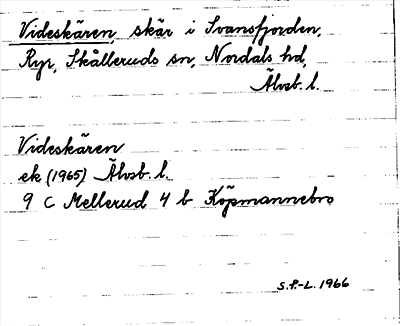 Videskären, skär i Svansfjorden,
Ryr, Skålleruds sn, Nordals hd,
Älvsb. l.
Videskären
ek (1965) Älvsb. l.
9 C Mellerud 4 b Köpmannebro
S.F.-L. 1966